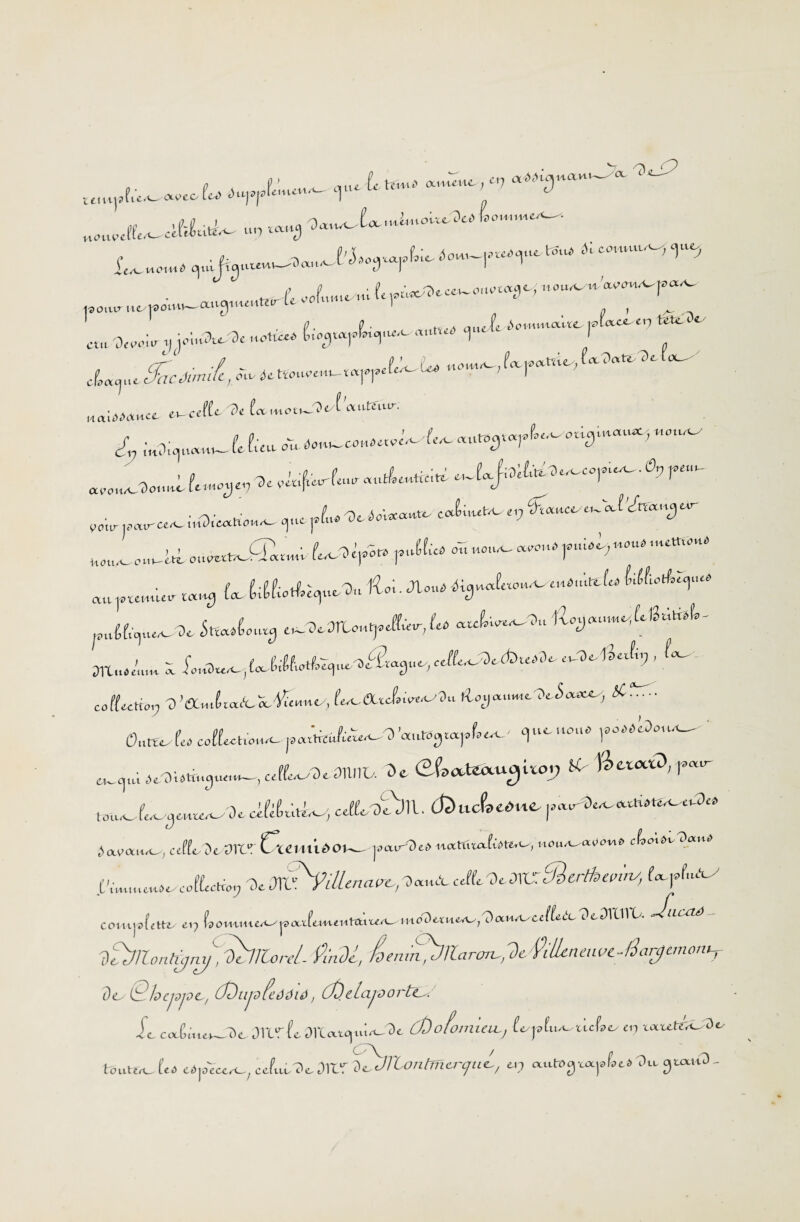 remplies avec les supplémens que le tems amène, en assignant à de
nouvelles célébrités un rang dans la mémoire des hommes.
Les noms qui figurent dans l'Isographie sont presque tous si connus, que,
pour ne point augmenter le volume ni le prix de cet ouvrage, nous n'avons pas
cru devoir y joindre de notices biographiques autres que le sommaire placé en tête de
chaque Facsimile, où se trouvent rappelés les noms, la patrie, la date de la
naissance et celle de la mort de l'auteur.
En indiquant le lieu où sont conservés les autographes originaux, nous
avons donné le moyen de vérifier leur authenticité et la fidélité des copies. On peut
voir par ces indications que plus de soixante cabinets en France et à l'Etranger
nous ont été ouverts. Parmi les dépôts publics où nous avons puisé, nous mettrons
au premier rang la bibliothèque du Roi. Nous signalerons ensuite les bibliothèques
publiques de Strasbourg et de Montpellier, les archives du Royaume, le British-
Museum à Londres, la bibliothèque de Prague, celles de Dresde et de Berlin, la
collection d'Ambras à Vienne, les Archives du Royaume de Saxe, &c....
Outre les collections particulières d'autographes que nous possédons
et qui se distinguent, celles de MM. de Chateaugiron & Berard, pour
tous les genres de célébrités, celle de M. Duchesne pour des artistes et des
savans, celle de Mr. Cremisot pour des naturalistes, nous avons choisi dans
l'immense collection de Mr. Villenave, dans celle de Mr. Berthevin, la plus
complette en hommes parlementaires modernes, dans celles de MM. Lucas-
de Montigny, de Morel-Vindé, henin, Maron, de Villeneuve-Bargemont,
de Cheppe, Duplessis, Delaporte.
Le cabinet de Mr. le Marquis de Dolomieu, le plus riche en raretés de
toutes les espèces, celui de Mr. de Montmerqué, en autographes du grand-